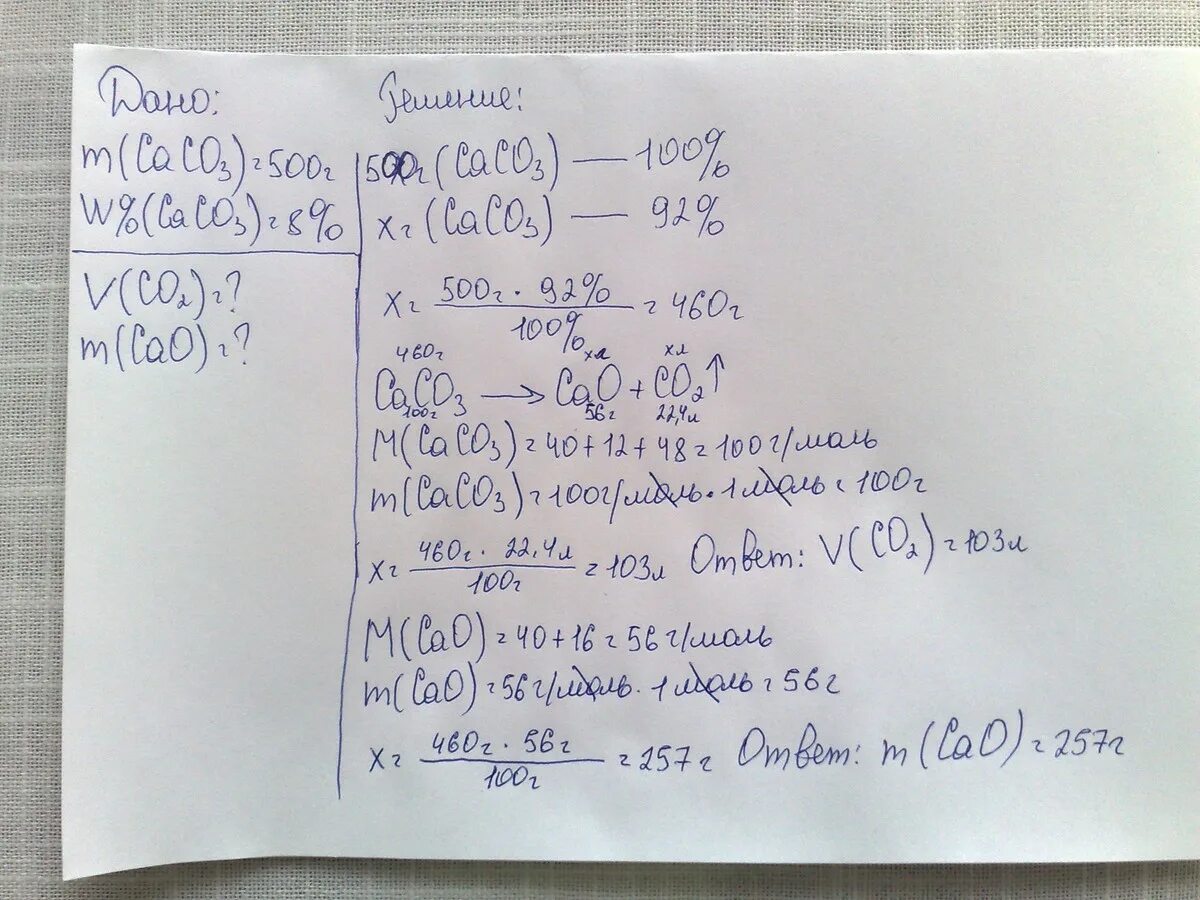 Дано:
m(CaCO3)=500г
W%(CaCO3)=8%
V(CO2)=?
m(CaO)=?
Решение:
500г (CaCO3) — 100%
xг (CaCO3) — 92%
x = 500г · 92% / 100% = 460г
460г xг xл
CaCO3 → CaO + CO2↑
100г 56г 22,4л
M(CaCO3) = 40+12+48 = 100г/моль
m(CaCO3) = 100г/моль · 1моль = 100г
x = 460г · 22,4л / 100г = 103л Ответ: V(CO2) = 103л
M(CaO) = 40+16 = 56г/моль
m(CaO) = 56г/моль · 1моль = 56г
x = 460г · 56г / 100г = 257г Ответ: m(CaO) = 257г